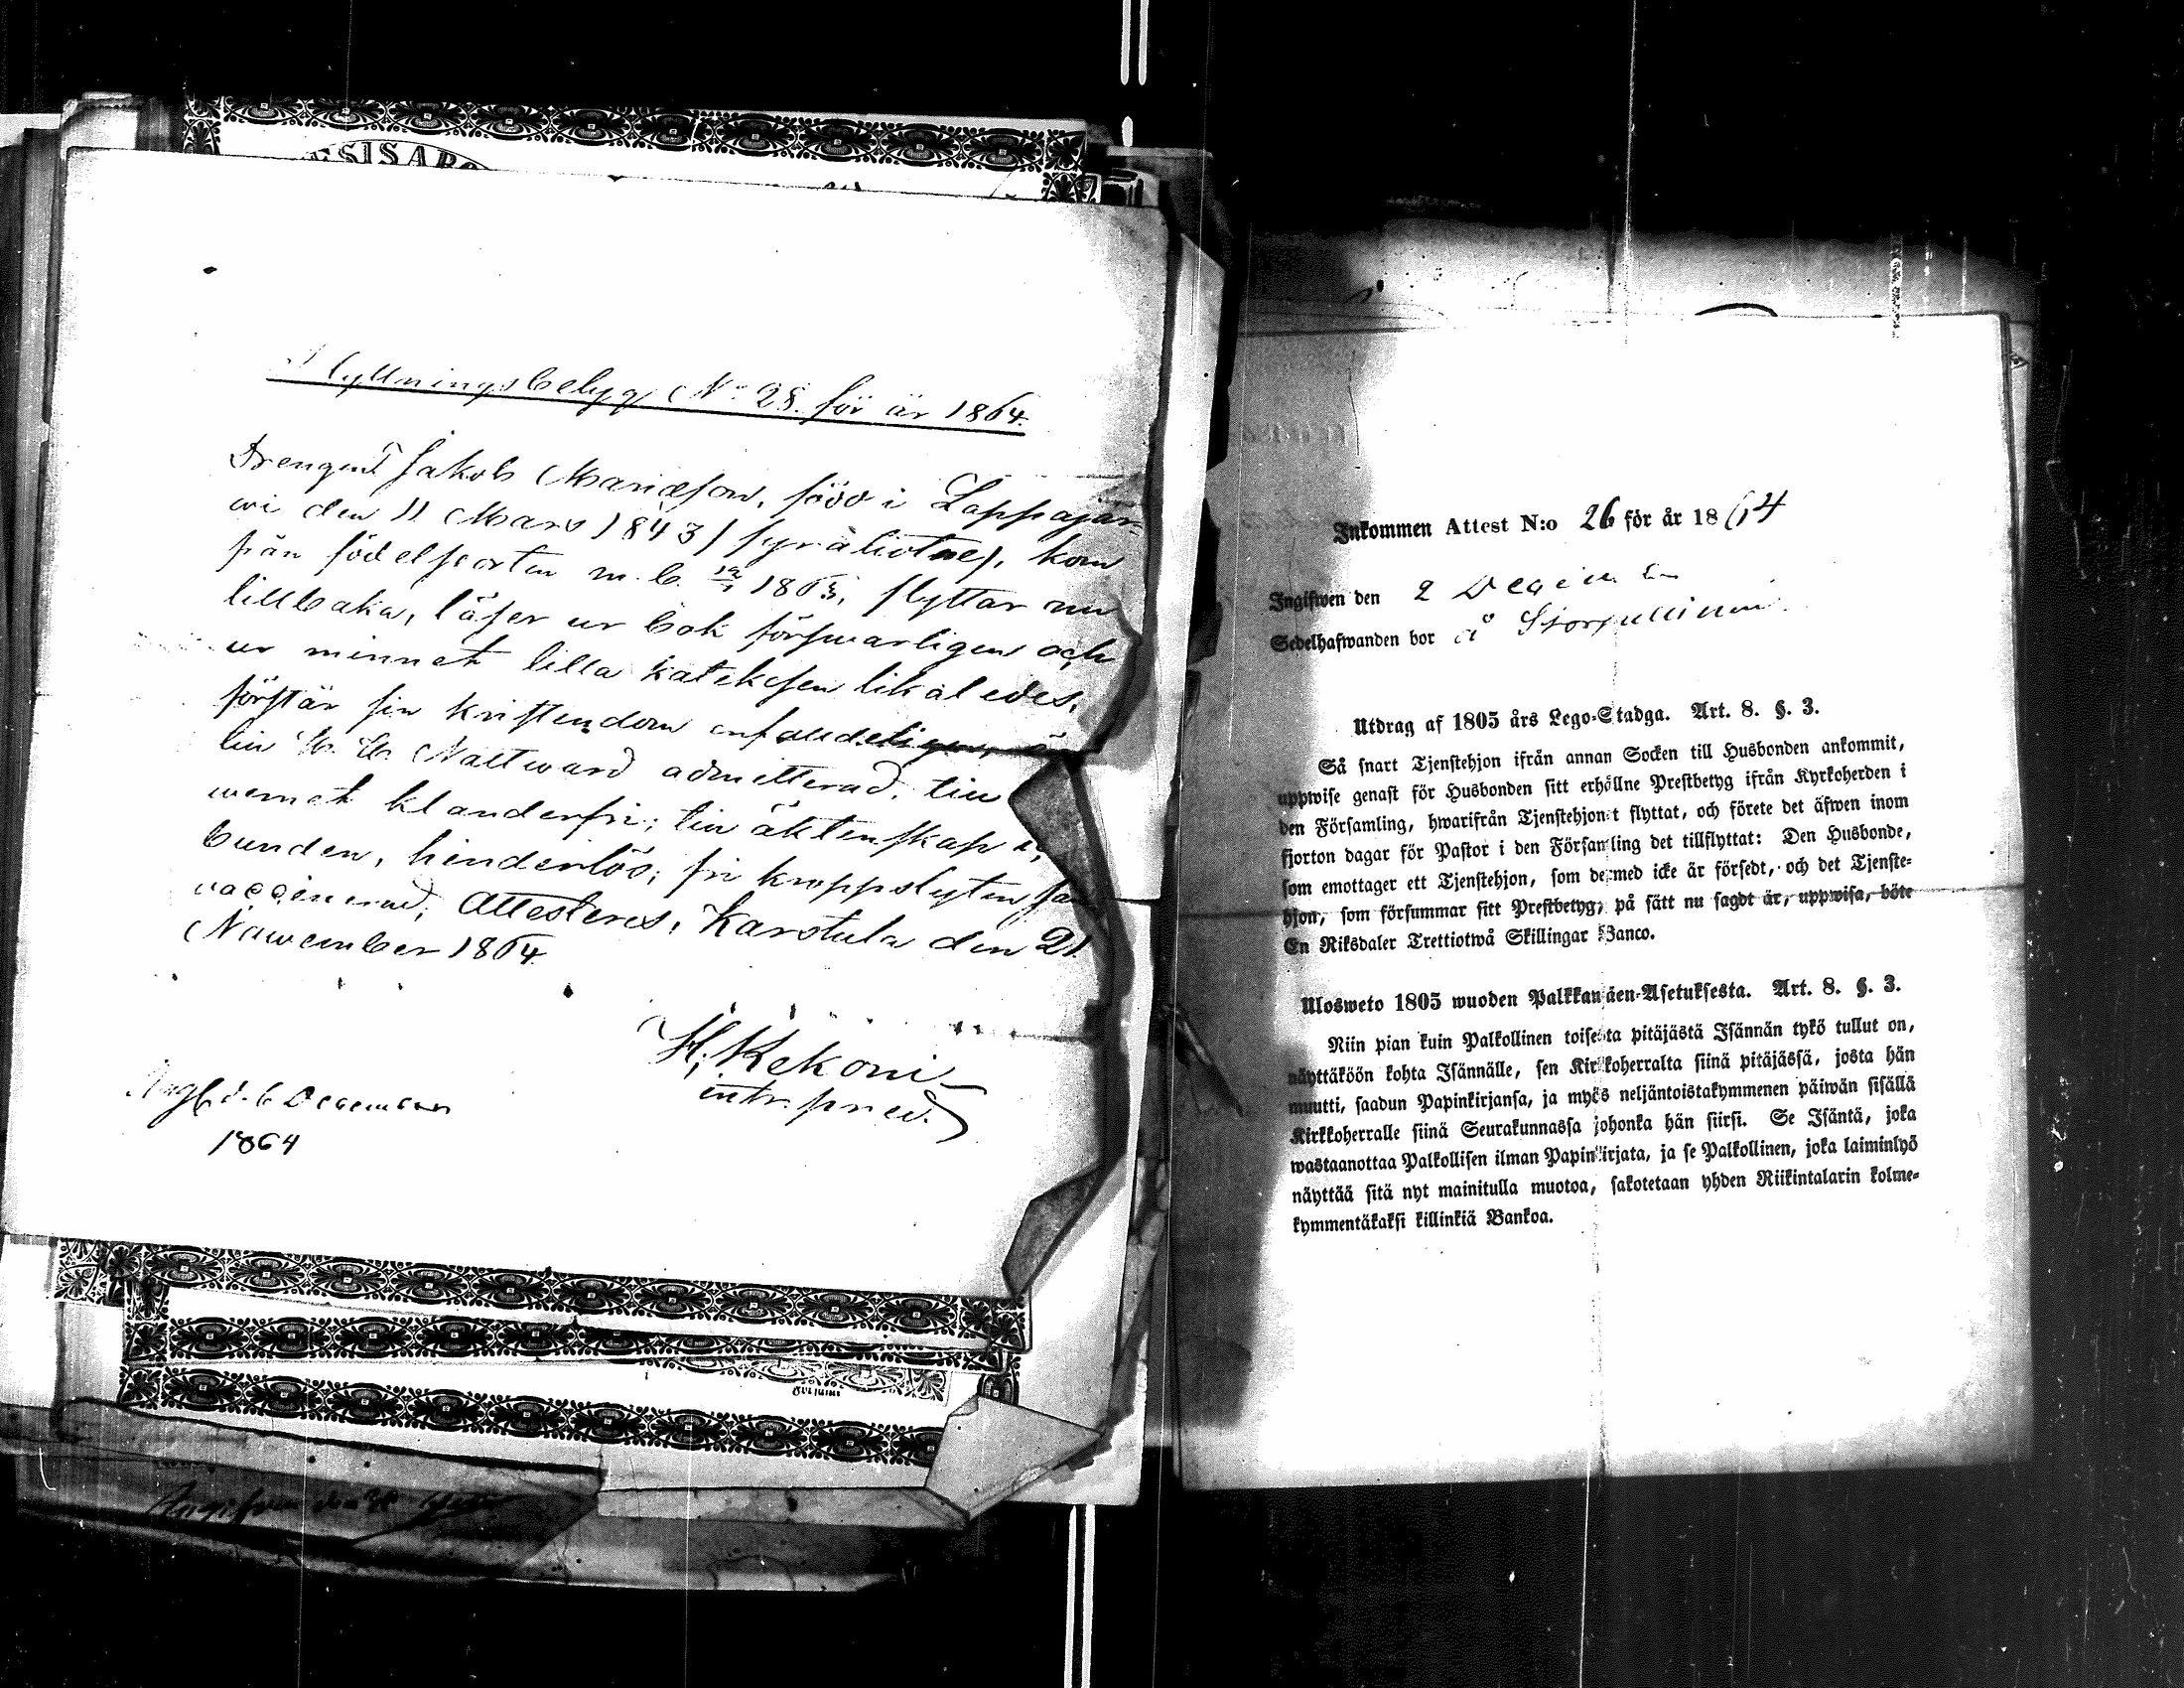 ESISARO
Flyttningsbetyg No 28. för år 1864.
Drengen Jakob Mariæson, född i Lappajär-
wi den 11 Mars 1843 / fyrationtre /, kom
från födelseorten m. b. 1863, flyttar nu
tillbaka, läser ur bok försvarligen och
ur minnet lilla katekesen likaledes,
förstår sin kristendom enfaldeligen, är
till H. H. Nattward admitterad, till
wernet klanderfri; till äktenskap
bunden, hinderlös; fri kroppslyten
vaccinerad; Attesteres, Karstula den 21.
Nowember 1864.
H. Kekoni
intr. pred.
Ingf. d. 6 December
1864
Ingifven den
Inkommen Attest N:o 26 för år 1864
Ingifwen den 2 December
Sedelhafwanden bor å
Utdrag af 1805 års Lego-Stadga. Art. 8. §. 3.
Så snart Tjenstehjon ifrån annan Socken till Husbonden ankommit,
uppwise genast för Husbonden sitt erhållne Prestbetyg ifrån Kyrkoherden i
den Församling, hwarifrån Tjenstehjonet flyttat, och förete det äfwen inom
fjorton dagar för Pastor i den Församling det tillflyttat: Den Husbonde,
som emottager ett Tjenstehjon, som dermed icke är försedt, och det Tjenste-
hjon, som försummar sitt Prestbetyg, på sätt nu sagdt är, uppwisa, böte
En Riksdaler Trettiotwå Skillingar Banco.
Ulosweto 1805 wuoden Palkkawäen-Asetuksesta. Art. 8. §. 3.
Niin pian kuin Palkollinen toisesta pitäjästä Isännän tykö tullut on,
näyttäköön kohta Isännälle, sen Kirkkoherralta siinä pitäjässä, josta hän
muutti, saadun Papinkirjansa, ja myös neljäntoistakymmenen päiwän sisällä
Kirkkoherralle siinä Seurakunnassa johonka hän siirsi. Se Isäntä, joka
wastaanottaa Palkollisen ilman Papinkirjata, ja se Palkollinen, joka laiminlyö
näyttää sitä nyt mainitulla muotoa, sakotetaan yhden Riikintalarin kolme-
kymmentäkaksi killinkiä Bankoa.